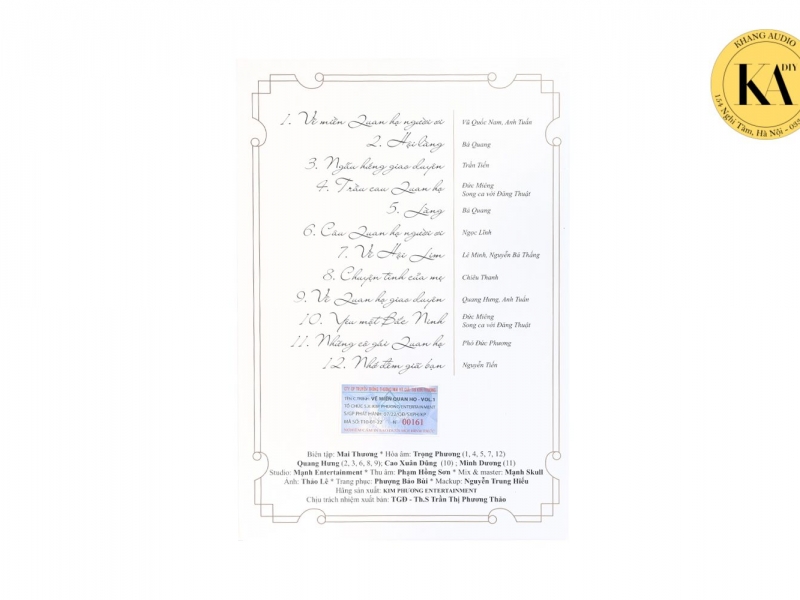 KHANG AUDIO
DIY
KA
154 Nghi Tàm, Hà Nội - 035
1. Về miền Quan họ người ơi
Vũ Quốc Nam, Anh Tuấn
2. Hội làng
Bá Quang
3. Ngẫu hứng giao duyên
Trần Tiến
4. Trầu cau Quan họ
Đức Miêng
Song ca với Đăng Thuật
5. Làng
Bá Quang
6. Câu Quan họ người ơi
Ngọc Lĩnh
7. Về Hội Lim
Lê Minh, Nguyễn Bá Thắng
8. Chuyện tình của mẹ
Chiêu Thanh
9. Về Quan họ giao duyên
Quang Hưng, Anh Tuấn
10. Yêu một Bắc Ninh
Đức Miêng
Song ca với Đăng Thuật
11. Những cô gái Quan họ
Phó Đức Phương
12. Nhớ đêm giã bạn
Nguyễn Tiến
VỀ MIỀN QUAN HỌ - VOL.1
00161
Biên tập: Mai Thương * Hòa âm: Trọng Phương (1, 4, 5, 7, 12)
Quang Hưng (2, 3, 6, 8, 9); Cao Xuân Dũng (10) ; Minh Dương (11)
Studio: Mạnh Entertainment * Thu âm: Phạm Hồng Sơn * Mix & master: Mạnh Skull
Ảnh: Thảo Lê * Trang phục: Phượng Bảo Bùi * Mackup: Nguyễn Trung Hiếu
Hãng sản xuất: KIM PHƯỢNG ENTERTAINMENT
Chịu trách nhiệm xuất bản: TGĐ - Th.S Trần Thị Phương Thảo